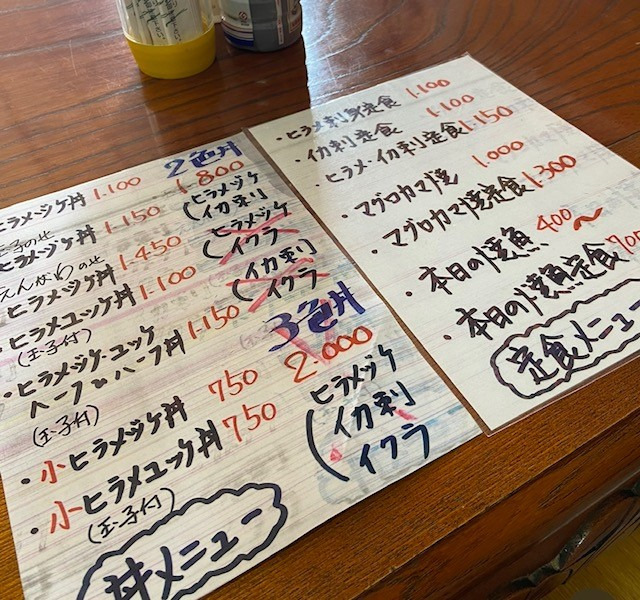 ヒラメヅケ丼 1.100
玉子のせ
ヒラメヅケ丼 1.150
えんがわのせ
ヒラメヅケ丼 1.450
・ヒラメユッケ丼 1.100
(玉子付)
・ヒラメヅケ・ユッケ
ハーフ&ハーフ丼 1.150
(玉子付)
・小ヒラメヅケ丼 750
・小ヒラメユッケ丼 750
(玉子付)
2色丼
1.800
(ヒラメヅケ
イカ刺)
(ヒラメヅケ
イクラ)
(イカ刺
イクラ)
3色丼
2.000
(ヒラメヅケ
イカ刺
イクラ
丼メニュー
・ヒラメ刺身定食 1.100
・イカ刺定食 1.100
・ヒラメ・イカ刺定食 1.150
・マグロカマ焼 1.000
・マグロカマ焼定食 1.300
・本日の焼魚 400〜
・本日の焼魚定食 700
定食メニュー